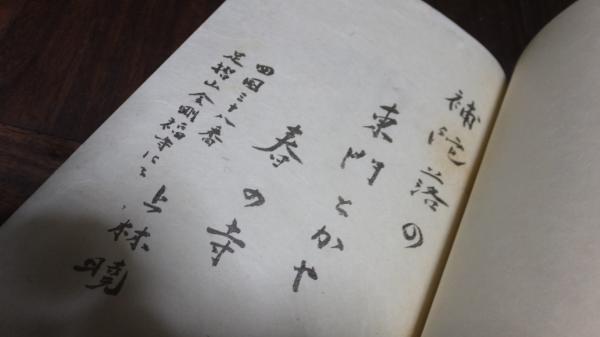 補陀落の
東門とかや
春の寺
四国三十八番
足摺山金剛福寺にて、上林曉